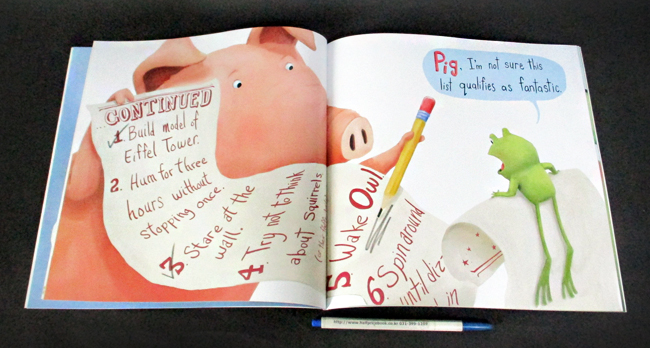 CONTINUED
1. Build model of
Eiffel Tower.
2. Hum for three
hours without
stopping once.
3. Stare at the
wall.
4. Try not to think
about Squirrels
5. Wake Owl
6. Spin around
until diz
in
Pig. I'm not sure this
list qualifies as fantastic.